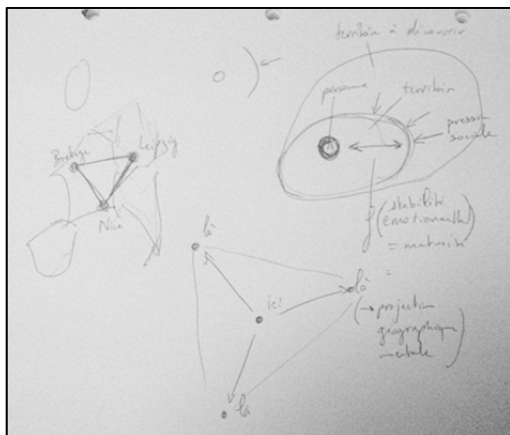 territoire à découvrir
personne
territoire
pression
sociale
Bretagne
Leipzig
Nice
(stabilité
émotionnelle)
= maturité
là
ici
là =
(→ projection
géographique
mentale)
là